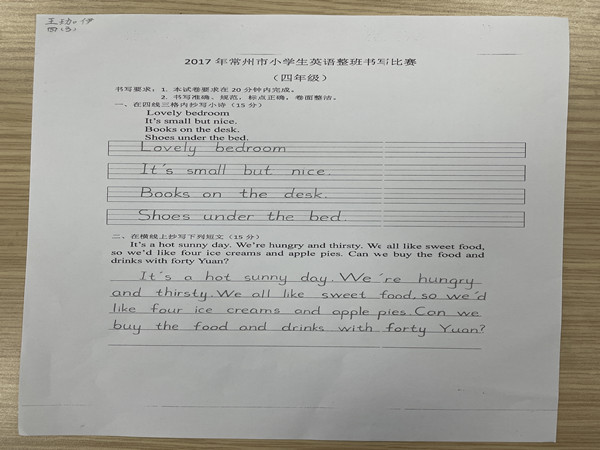 四(3)
2017 年常州市小学生英语整班书写比赛
（四年级）
书写要求：1. 本试卷要求在 20 分钟内完成。
2. 书写准确、规范，标点正确，卷面整洁。
一、在四线三格内抄写小诗（15 分）
Lovely bedroom
It's small but nice.
Books on the desk.
Shoes under the bed.
Lovely bedroom
It's small but nice.
Books on the desk.
Shoes under the bed.
二、在横线上抄写下列短文（15 分）
It's a hot sunny day. We're hungry and thirsty. We all like sweet food,
so we'd like four ice creams and apple pies. Can we buy the food and
drinks with forty Yuan?
It's a hot sunny day. We're hungry
and thirsty. We all like sweet food, so we'd
like four ice creams and apple pies. Can we
buy the food and drinks with forty Yuan?